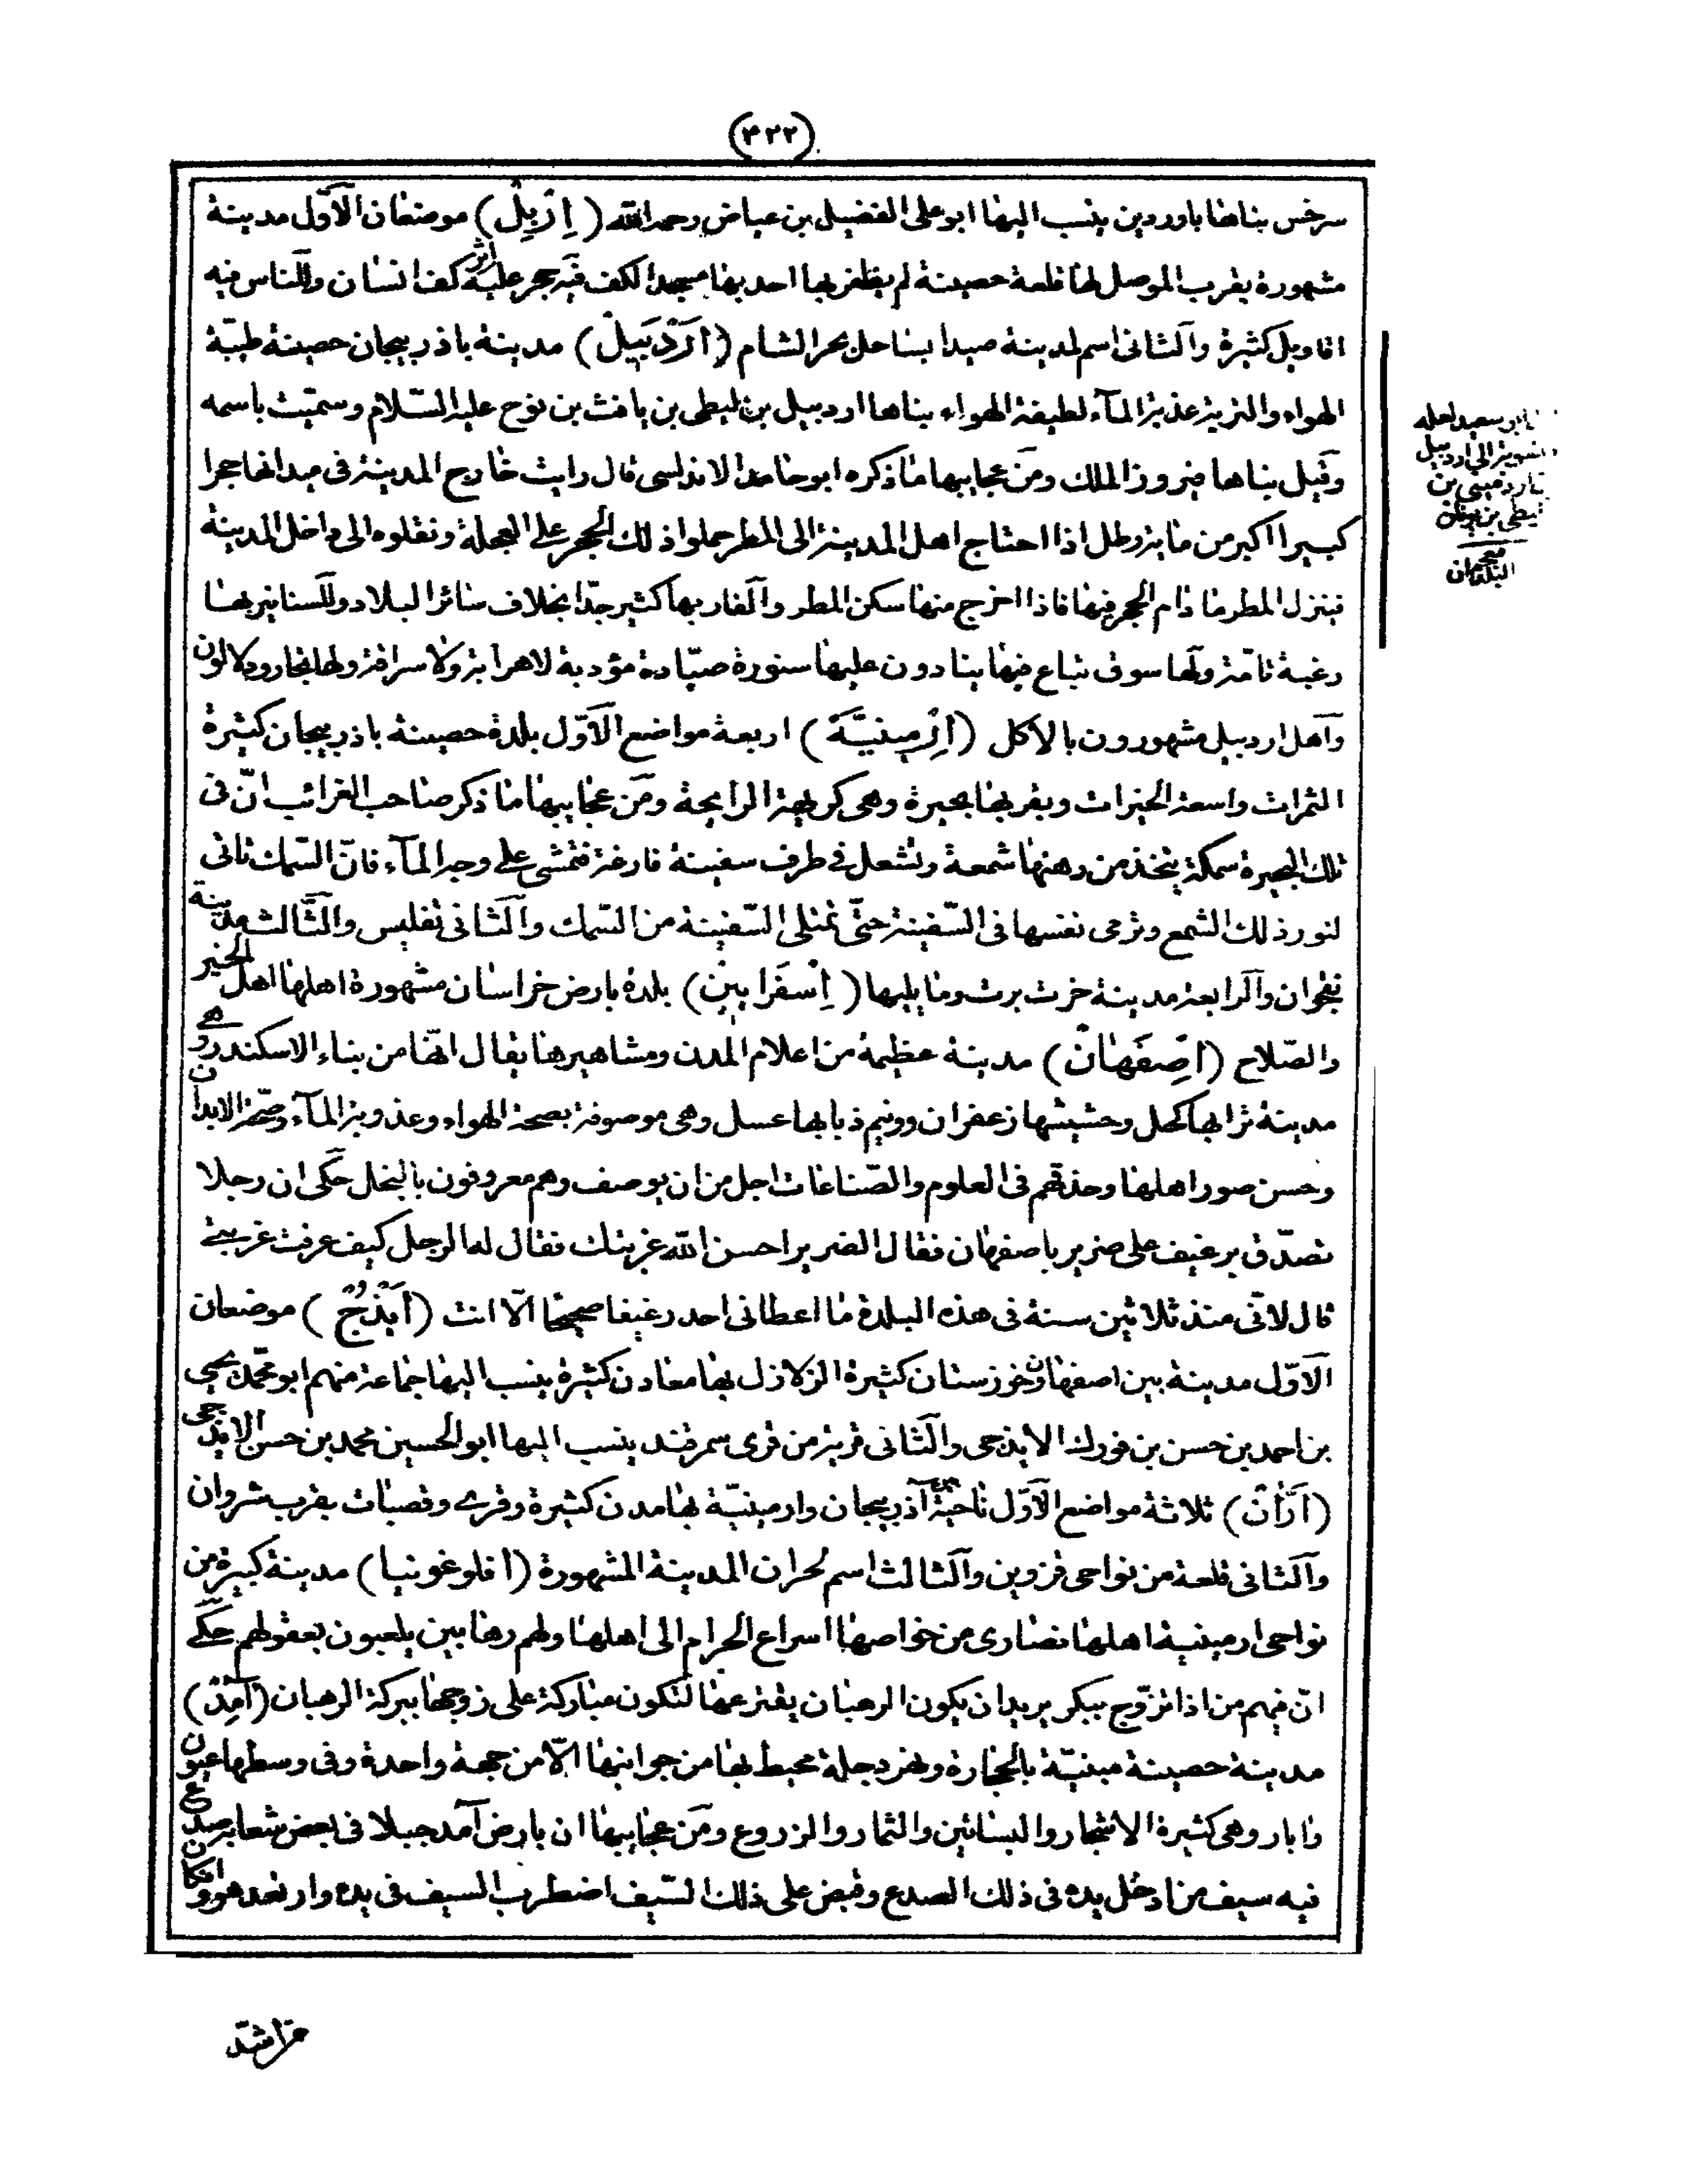 (٤٢٢)
سرخس بناها باوردبن ينسب اليها ابو على الفضيل بن عياض رحمه الله (اِرْبِلْ) موضعان الاَوّل مدينة
مشهورة بقرب الموصل لها قلعة حصينة لم يظفر بها احد بها مسجد الكف فيه حجر عليه اثر كف انسان وللناس فيه
اقاويل كثيرة والثانى اسم لمدينة صيدا بساحل بحر الشام (اَرْدَبيلْ) مدينة باذربيجان حصينة طيّبة
الهواء والتربة عذبة المآء لطيفة الهواء بناها اردبيل بن ليطى بن يافث بن نوح عليه السّلام وسمّيت باسمه
وقيل بناها فيروز الملك ومن عجايبها ما ذكره ابو حامد الاندلسى قال رايت خارج المدينة فى ميدانها حجرا
كبيرا اكبر من مايتر رطل اذا احتاج اهل المدينة الى المطر حملوا ذلك الحجر على العجلة ونقلوه الى داخل المدينة
فينزل المطر ما دام الحجر فيها فاذا اخرج منها سكن المطر والفار بها كثير جدّا بخلاف سائر البلاد وللسنانير بها
رغبة تامّة ولها سوق تباع فيها ينادون عليها سنورة صيّادة مؤدبة لا هرابة ولا سراقة ولها تجار ودلالون
واهل اردبيل مشهورون بالاكل (اَرْمِينيَّة) اربعة مواضع الاَوّل بلدة حصينة باذربيجان كثيرة
الثمرات واسعة الخيرات وبقربها بحيرة وهى كريهة الرايحة ومن عجايبها ما ذكر صاحب الغرائب انّ فى
تلك البحيرة سمكة يتخذ من دهنها شمعة وتشعل فى طرف سفينة فارغة فتمشى على وجه المآء فانّ السّمك تاتى
لنور ذلك الشمع وترمى نفسها فى السّفينة حتّى تمتلى السّفينة من السّمك والثانى تفليس والثّالث مدينة
نقجوان والرابعة مدينة خرت برت وما يليها (اِسْفَرايِين) بلدة بارض خراسان مشهورة اهلها اهل الخير
والصّلاح (اصْفَهانْ) مدينة عظيمة من اعلام المدن ومشاهيرها يقال انّها من بناء الاسكندر وهى
مدينة ترابها كحل وحشيشها زعفران وونيم ذبابها عسل وهى موصوفة بصحة الهواء وعذوبة المآء وصحّة الابدان
وحسن صور اهلها وحذقهم فى العلوم والصّناعات اجل من ان يوصف وهم معروفون بالبخل حكى ان رجلا
تصدّق برغيف على ضرير باصفهان فقال الضرير احسن الله غربتك فقال له الرجل كيف عرفت غربتى
قال لانّى منذ ثلاثين سنة فى هذه البلدة ما اعطانى احد رغيفا صحيحا الّا انت (اَيْذَجُ) موضعان
الاَوّل مدينة بين اصفهان وخوزستان كثيرة الزلازل بها معادن كثيرة ينسب اليها جماعة منهم ابو محمّد يحيى
بن احمد بن حسن بن فورك الايذجى والثانى قرية من قرى سمرقند ينسب اليها ابو الحسين محمد بن حسن الايذجى
(اَرّانْ) ثلاثة مواضع الاَوّل ناحية بين آذربيجان وارمينيّة بها مدن كثيرة وقرى وقصبات بقرب شروان
والثانى قلعة من نواحى قزوين والثالث اسم لحران المدينة المشهورة (افلوغونيا) مدينة كبيرة من
نواحى ارمينية اهلها نصارى من خواصها اسراع الحرام الى اهلها ولهم رهابين يلعبون بعقولهم حكى
انّ فيهم من اذا تزوّج ببكر يريد ان يكون الرهبان يفترعها لتكون مباركة على زوجها ببركة الرهبان (آمِدْ)
مدينة حصينة مبنيّة بالحجارة ونهر دجلة محيط بها من جوانبها الّا من جهة واحدة وفى وسطها عيون
وابار وهى كثيرة الاشجار والبساتين والثمار والزروع ومن عجايبها ان بارض آمد جبلا فى بعض شعابه صدع
فيه سيف من ادخل يده فى ذلك الصدع وقبض على ذلك السّيف اضطرب السيف فى يده وارتعد هو ولو كان
ابو سعيد لعله
اردبيل
بن
معجم
البلدان